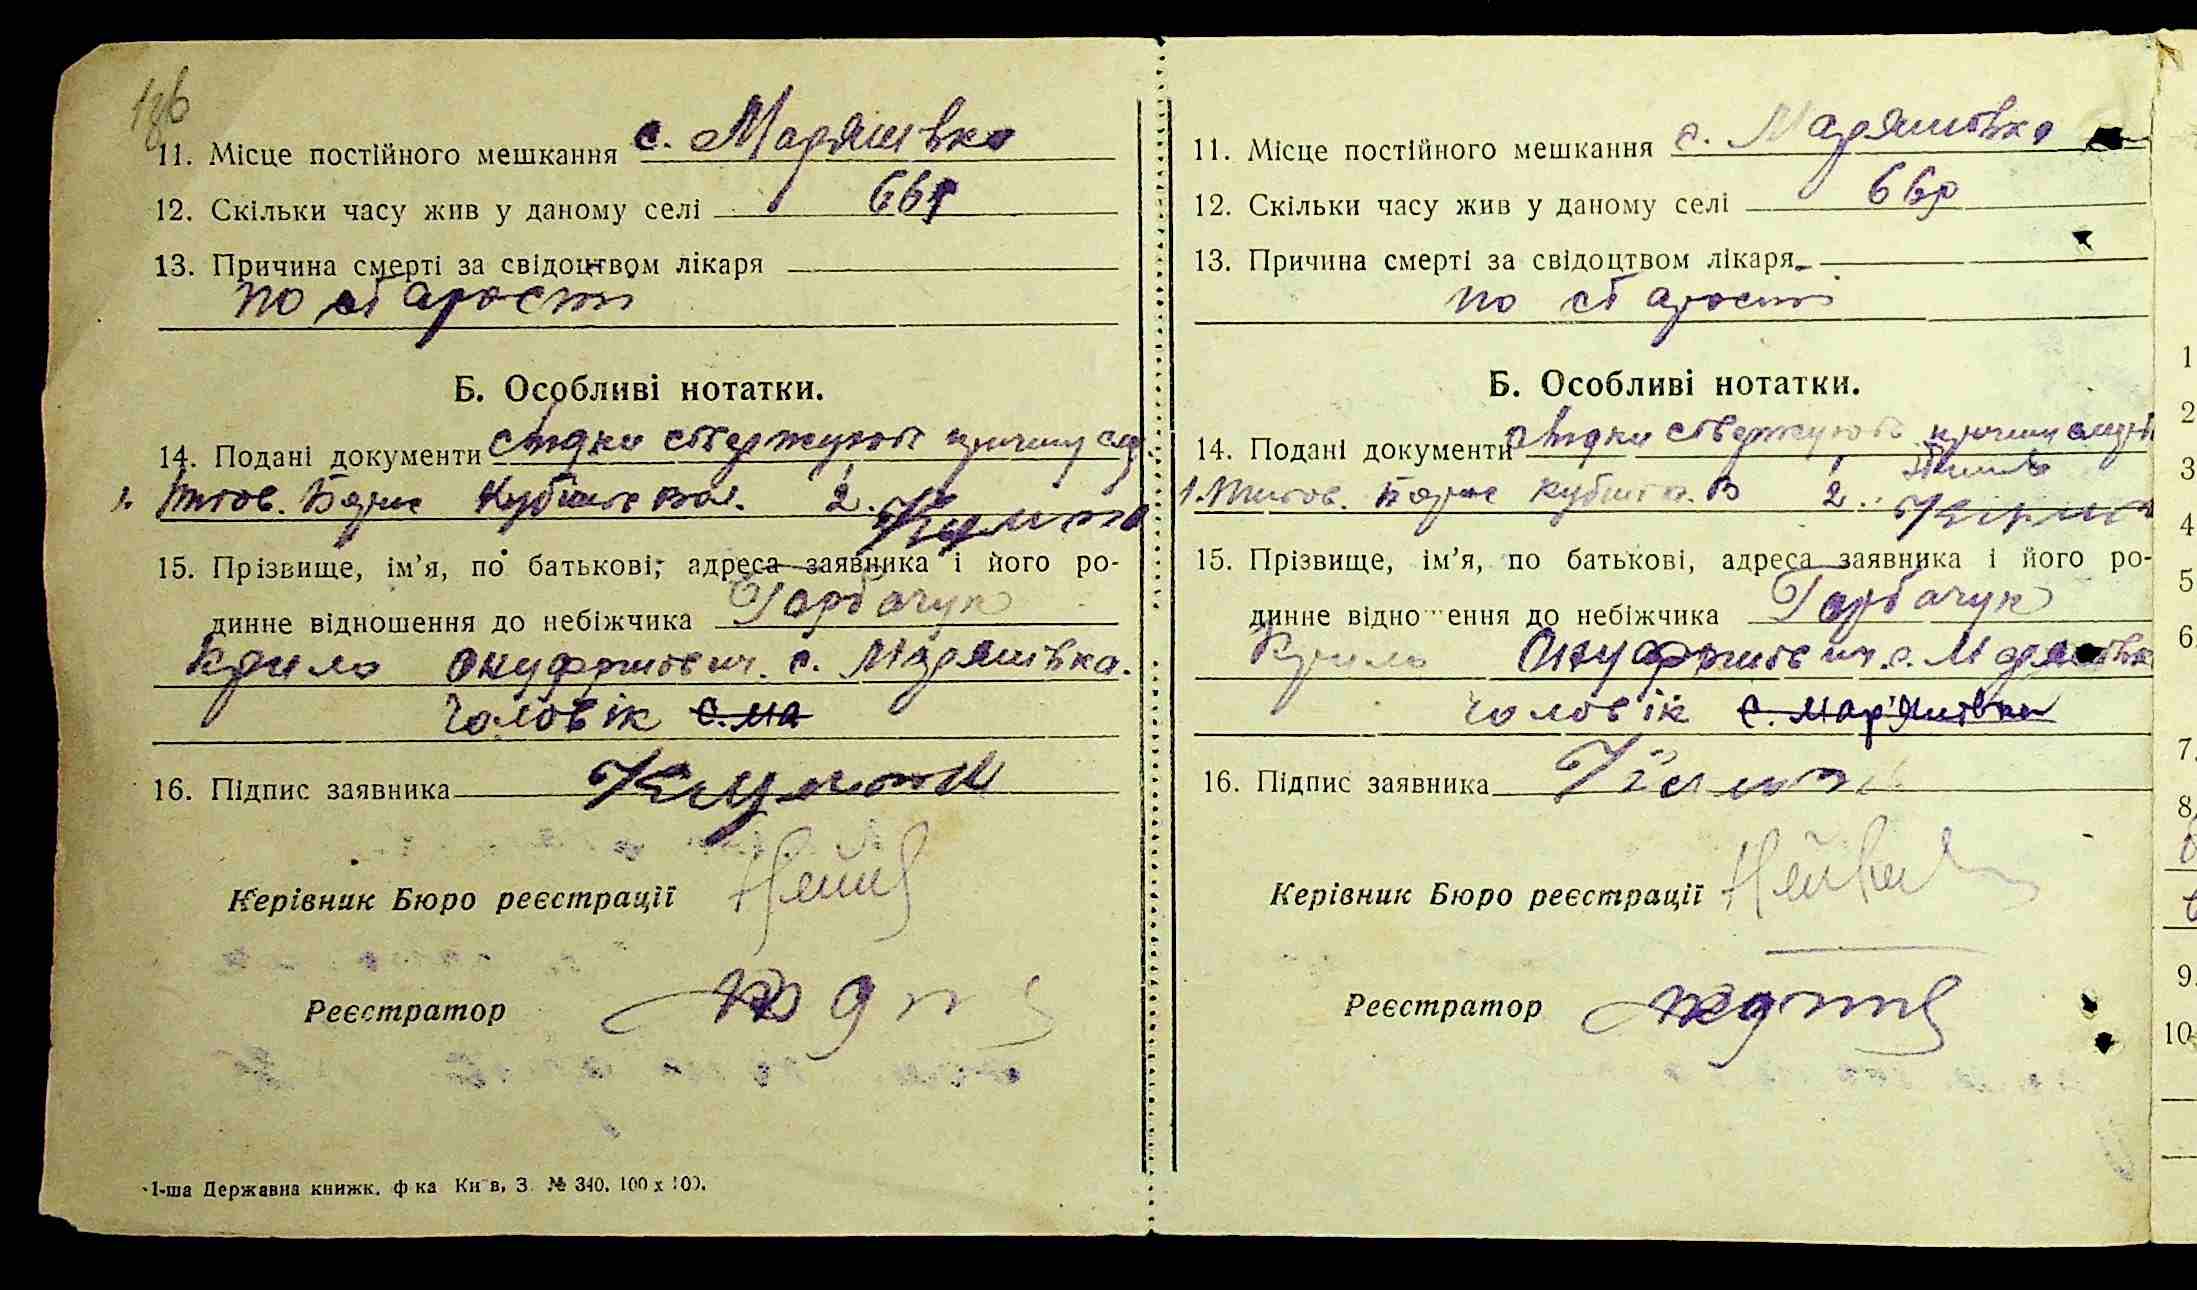 186
11. Місце постійного мешкання с. Маряшівка
12. Скільки часу жив у даному селі 66р
13. Причина смерті за свідоцтвом лікаря
по старости
Б. Особливі нотатки.
14. Подані документи свідки ствержують причину
1. 2.
15. Прізвище, ім’я, по батькові, адреса заявника і його ро-
динне відношення до небіжчика Гарбачук
Крило Онуфрійович. с. Маряшівка.
Чоловік с. ма
16. Підпис заявника
Керівник Бюро реєстрації
Реєстратор
1-ша Державна книжк. ф ка Ки в, З. № 340. 100 x 100.
11. Місце постійного мешкання с. Маряшівка
12. Скільки часу жив у даному селі 66р
13. Причина смерті за свідоцтвом лікаря
по старости
Б. Особливі нотатки.
14. Подані документи свідки ствержують причину смерти
1. 2.
15. Прізвище, ім’я, по батькові, адреса заявника і його ро-
динне відно ення до небіжчика Гарбачук
Крило Онуфрійович. с. Маряшівка
чоловік с. Мар'яшівка
16. Підпис заявника
Керівник Бюро реєстрації
Реєстратор
1
2
3
4
5
6.
7.
8.
9.
10